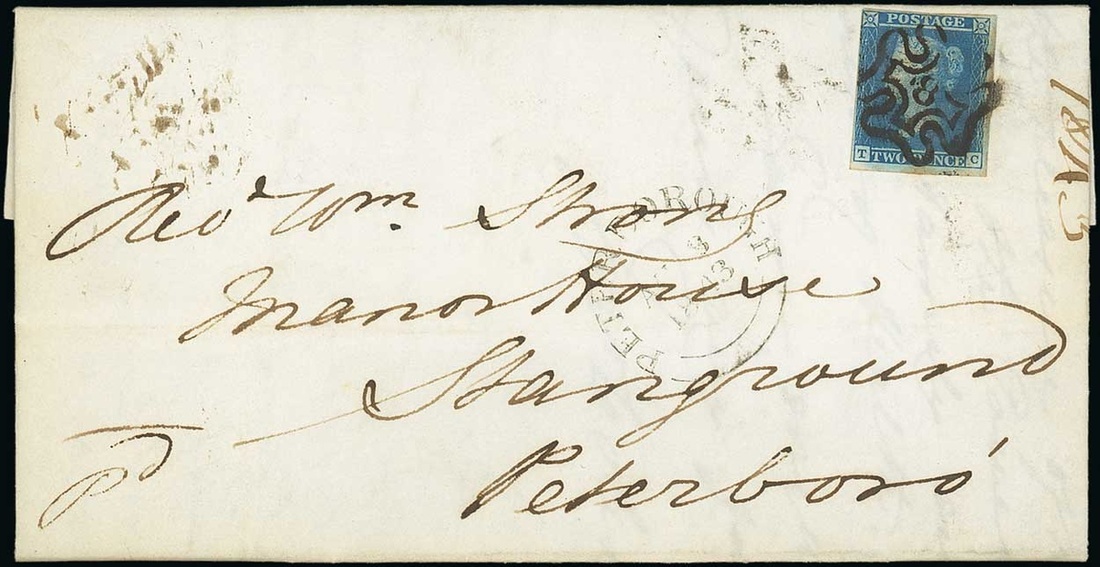 POSTAGE
8
T TWO PENCE C
1843
PETERBOROUGH
1843
Revd Wm. Strong
Manor House
Stanground
Peterboro'
pd